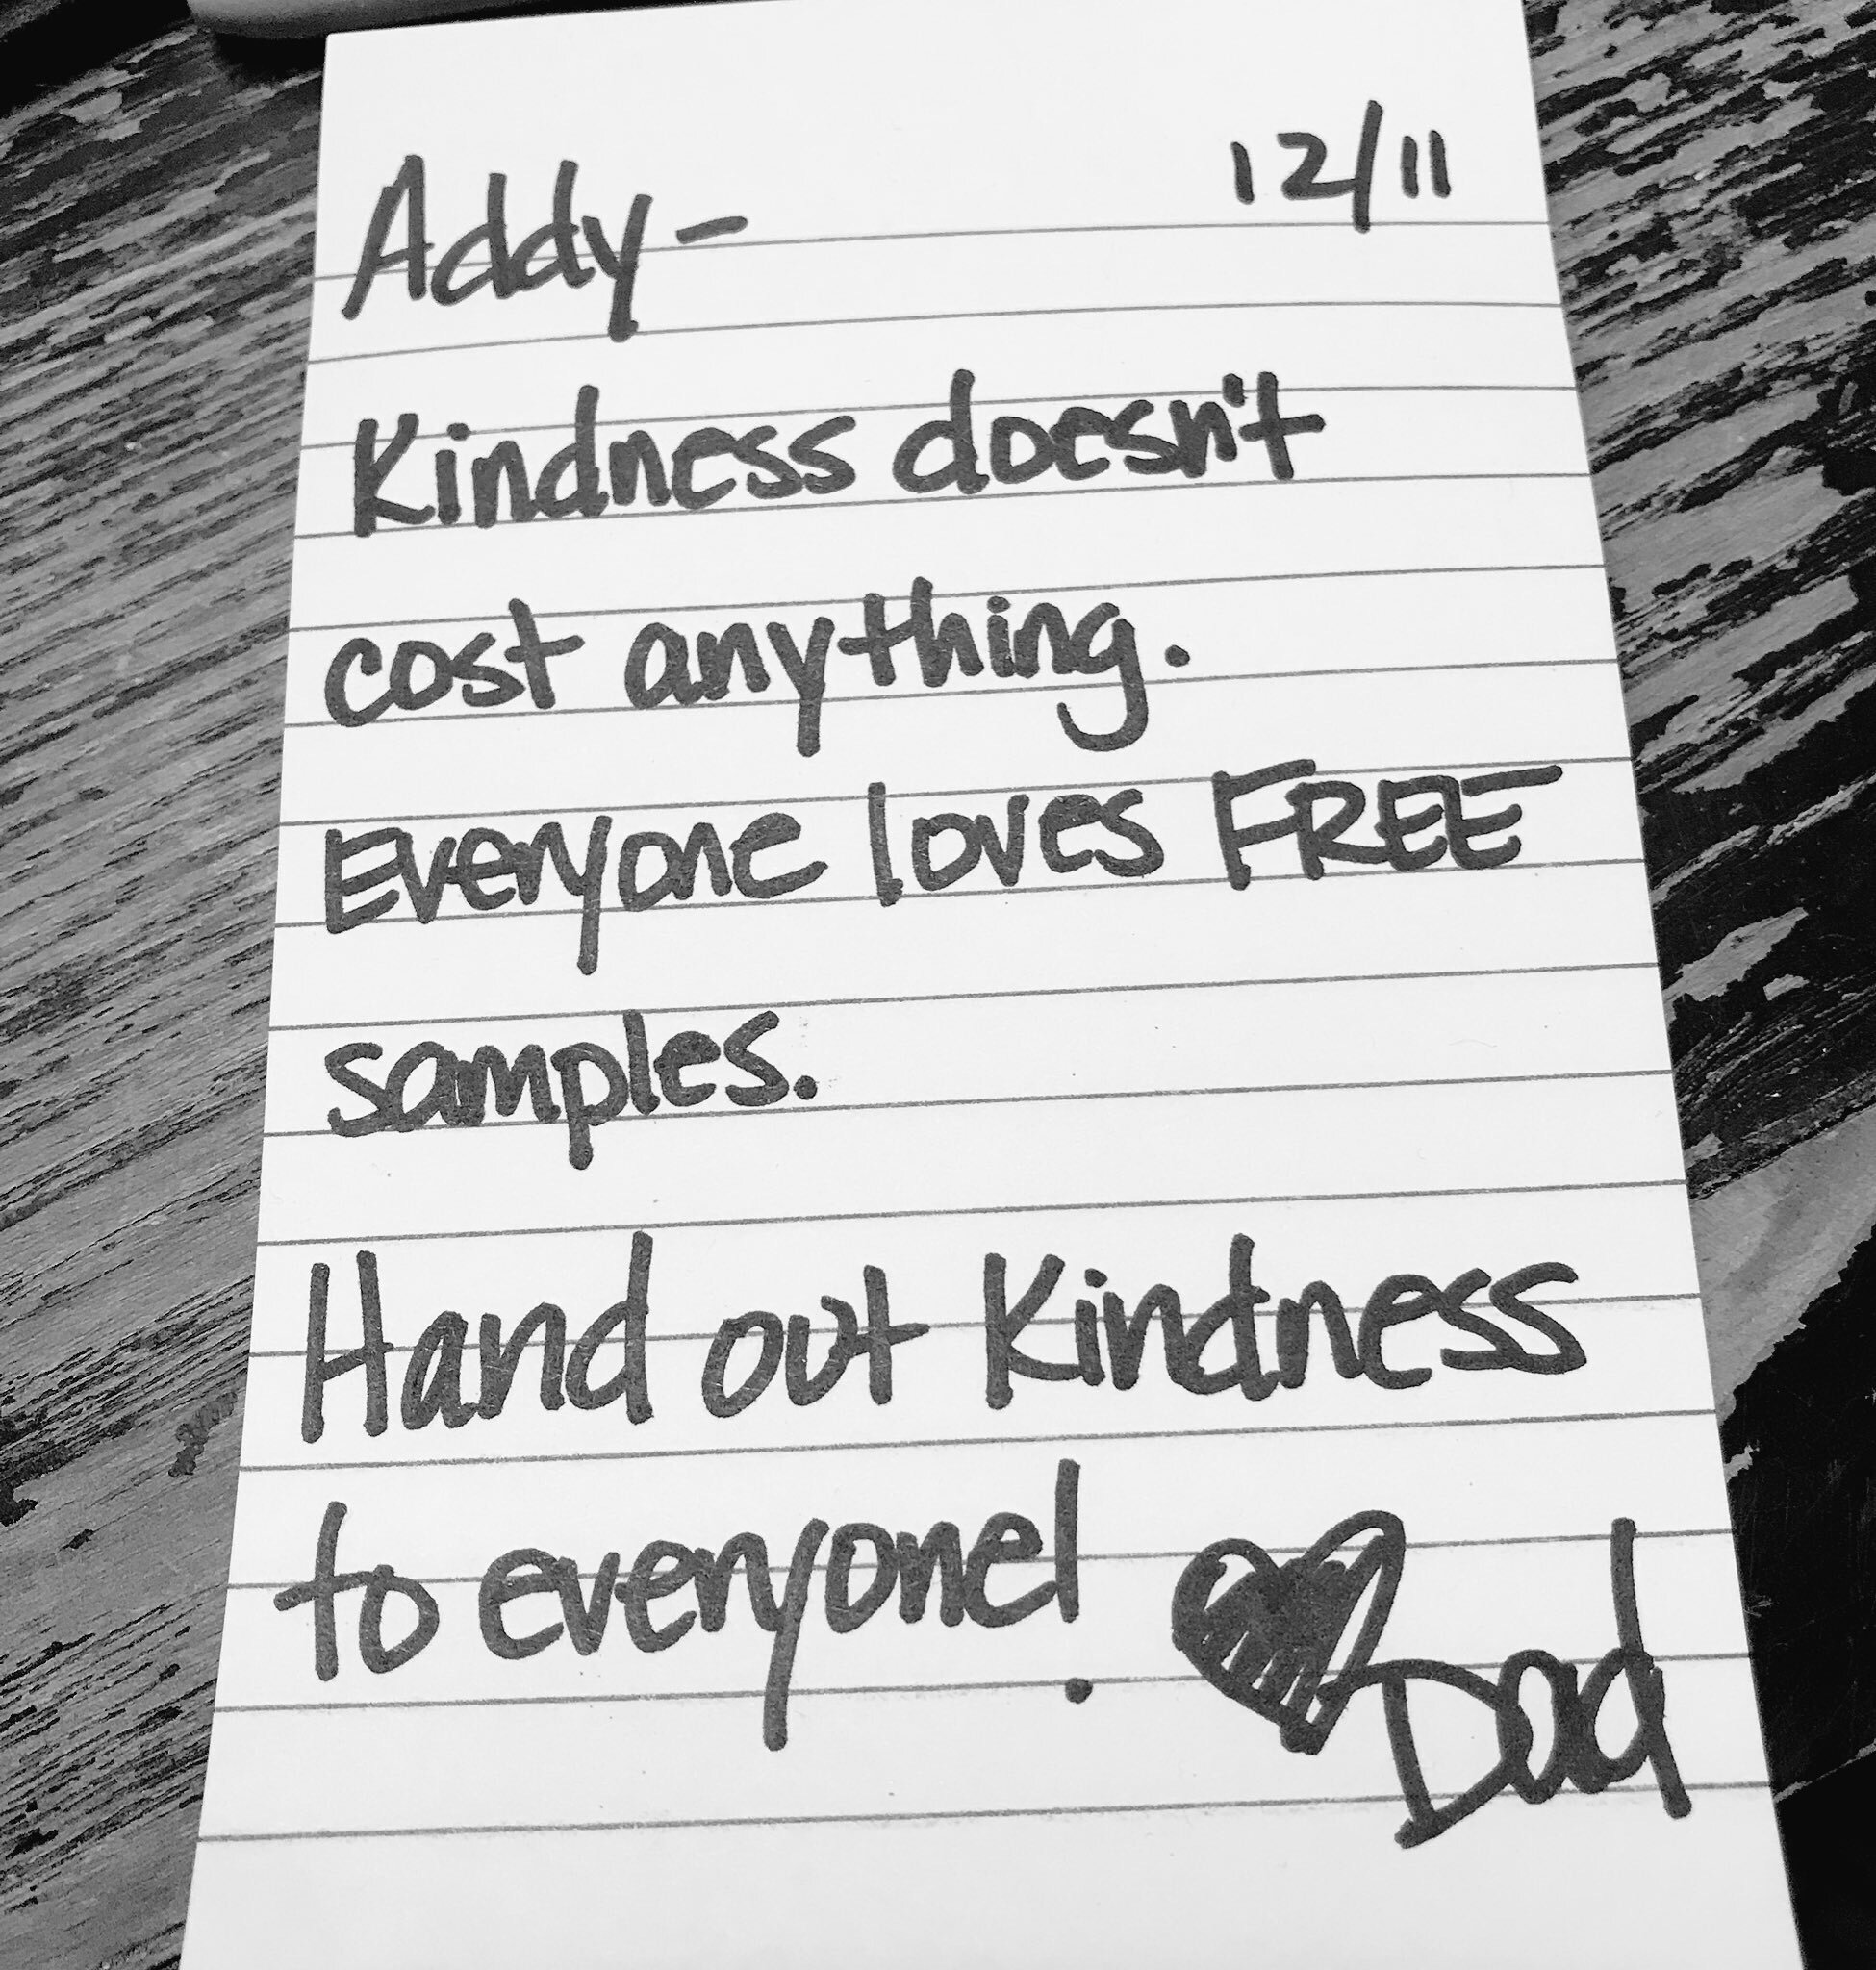 12/11
Addy-
Kindness doesn't
cost anything.
Everyone loves FREE
samples.
Hand out Kindness
to everyone!
Dad